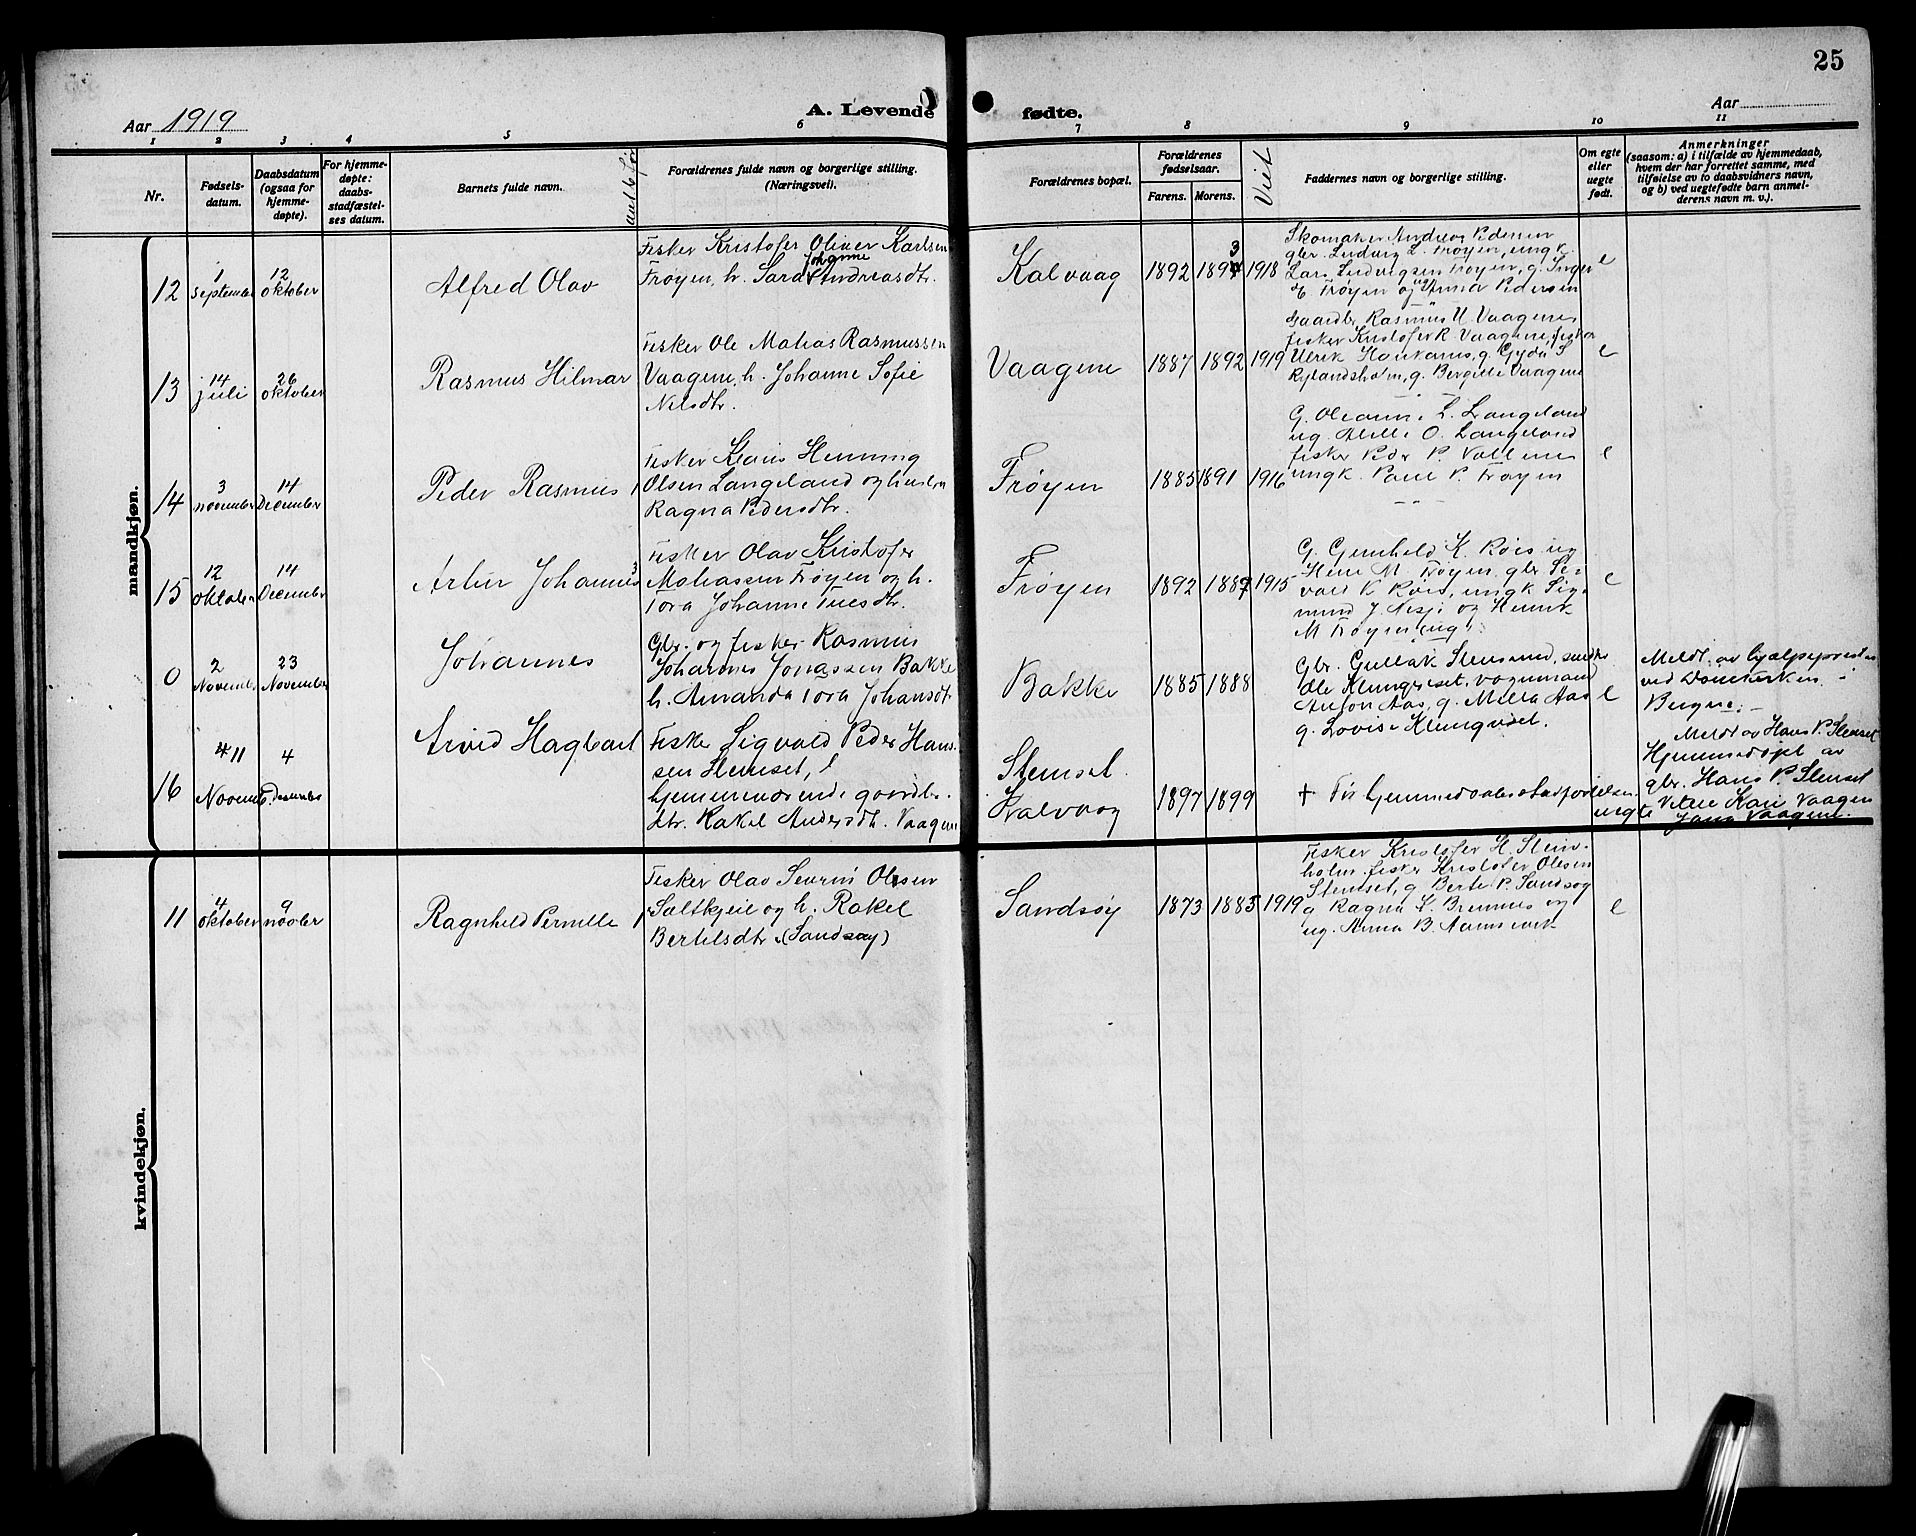 25
Aar 1919
A. Levende fødte.
Aar
1 2 3 4 5 6 7 8 9 10 11
Nr.
Fødsels-
datum.
Daabsdatum
(ogsaa for
hjemme-
døpte).
For hjemme-
døpte:
daabs-
stadfæstel-
ses datum.
Barnets fulde navn.
Forældrenes fulde navn og borgerlige stilling.
(Næringsvei).
Forældrenes bopæl.
Forældrenes
fødselsaar.
Farens. Morens.
Viet
Faddernes navn og borgerlige stilling.
Om egte
eller
uegte
født.
Anmerkninger
(saasom: a) i tilfælde av hjemmedaab,
hvem der har forrettet samme, med
tilføielse av to daabsvidners navn,
og b) ved uegtefødte barn anmel-
derens navn m. v.).
mandkjøn.
12
1
september
12
oktober
Alfred Olav
Fisker Kristofer Oliver Karlsen
Johanne
Frøyen, h. Sara Andreasdtr.
Kalvaag
1892 1893 1918
Skomaker Andreas Pedersen
gbr. Ludvig L. Frøyen, ungk.
Lars Ludvigsen Frøyen, g. Inger
E Frøyen og Anna Pedersen
e
13
14
juli
26
oktober
Rasmus Hilmar
Fisker Ole Matias Rasmussen
Vaagene, h. Johanne Sofie
Nilsdtr.
Vaagene
1887 1892 1919
Gaardbr. Rasmus U. Vaagene
fisker Kristofer R Vaagene, fisker
Ulrik g. Gyda S
Rylandsholm, g. Bergitte Vaagene
e
14
3
november
14
December
Peder Rasmus 1
Fisker Klaus Henning
Olsen Langeland og hustru
Ragna Pedersdtr.
Frøyen
1885 1891 1916
G. Oleanna L. Langeland
ug. O. Langeland
fisker Peder P.
ungk. Paul P. Frøyen
e
15
12
oktober
14
December
Artur Johannes 3
Fisker Olav Kristofer
Matiassen Frøyen og h.
Tora Johanne
Frøyen
1892 1887 1915
G. Gunhild K. Røis ug
M. Frøyen, gbr Si-
vert K Røis, ungk Sig-
mund J. Nesje og Henrik
M Frøyen (ug).
e
0
2
November
23
November
Johannes
Gbr. og fisker Rasmus
Johannes Jonassen Bakke
h. Amanda Tora Johansdtr
Bakke
1885 1888
Gbr. Gullak Stensund,
Ole vognmand
Anton Aas, g. Milla Aas
g. Lovise
e
Meldt av hjælpepresten
ved Domkirken
Bergen.
16
4 11
November
4
December
Arvid Hagbart
Fisker Sigvald Peder Han-
sen Stenset,
hjemmeværende gaardbr.
dtr. Rakel Andersdtr. Vaagene
Stenset
Kalvaag
1897 1899
+ Før hjemmedaabsstadfæstelsen
uegte
Meldt av Hans P. Stenset
Hjemmedøpt av
gbr. Hans P. Stenset
Vitne Kari Vaagen
Vaagene.
kvindekjøn.
11
4
oktober
9
november
Ragnhild Pernille 1
Fisker Olav Severin Olsen
Saltkjeil og h. Rakel
Bertilsdtr. (Sandsøy)
Sandsøy
1873 1883 1919
Fisker Kristofer H. Stein-
holm, fisker Kristofer Olsen
Stenset, g Berte P. Sandsøy
g Ragna K. Bremnes og
ug. Anna B.
e